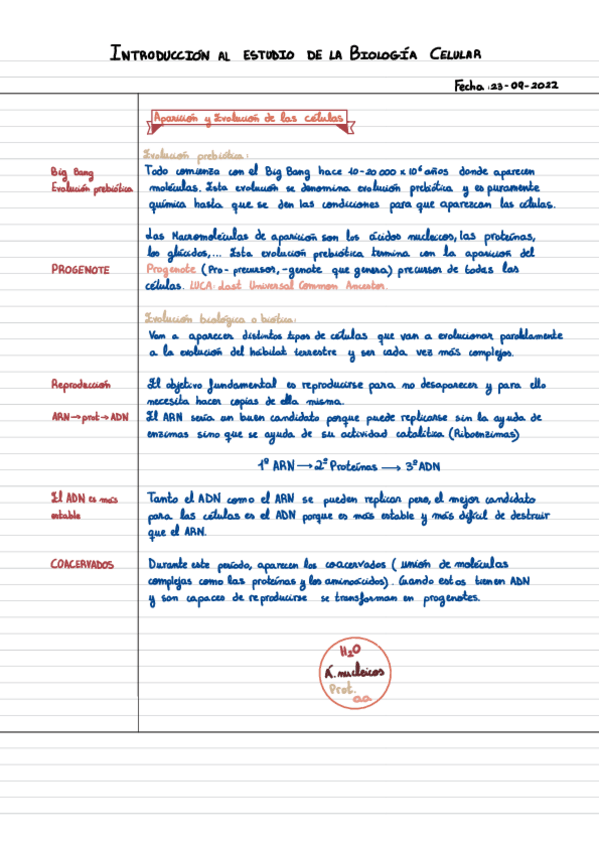 INTRODUCCIÓN AL ESTUDIO DE LA BIOLOGÍA CELULAR
Fecha: 23-09-2022
Aparición y Evolución de las células
Evolución prebiótica:
Big Bang
Evolución prebiótica
Todo comienza con el Big Bang hace 10-20 000 x 10⁶ años donde aparecen
moléculas. Esta evolución se denomina evolución prebiótica y es puramente
química hasta que se den las condiciones para que aparezcan las células.
Las Macromoléculas de aparición son los ácidos nucleicos, las proteínas,
los glúcidos,... Esta evolución prebiótica termina con la aparición del
PROGENOTE
Progenote (Pro- precursor, -genote que genera) precursor de todas las
células. LUCA: Last Universal Common Ancestor.
Evolución biológica o biótica:
Van a aparecer distintos tipos de células que van a evolucionar paralelamente
a la evolución del hábitat terrestre y ser cada vez más complejos.
Reproducción
El objetivo fundamental es reproducirse para no desaparecer y para ello
necesita hacer copias de ella misma.
ARN→prot→ADN
El ARN sería un buen candidato porque puede replicarse sin la ayuda de
enzimas sino que se ayuda de su actividad catalítica (Riboenzimas)
1º ARN → 2º Proteínas → 3º ADN
El ADN es más
estable
Tanto el ADN como el ARN se pueden replicar pero, el mejor candidato
para las células es el ADN porque es más estable y más difícil de destruir
que el ARN.
COACERVADOS
Durante este período, aparecen los coacervados (unión de moléculas
complejas como las proteínas y los aminoácidos). Cuando estos tienen ADN
y son capaces de reproducirse se transforman en progenotes.
H₂O
Á. nucleicos
Prot.
aa